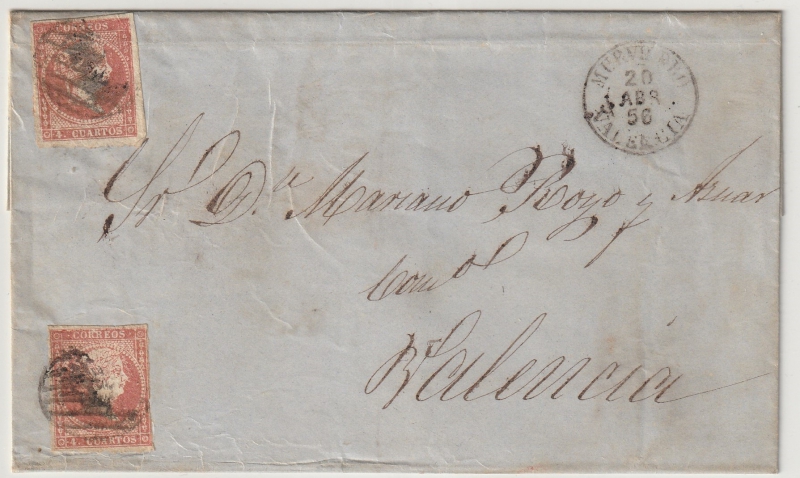 CORREOS
4. CUARTOS
20
ABR
56
VALENCIA
Sr. Dn. Mariano Royo y Aznar
Comol
Valencia
CORREOS
4. CUARTOS